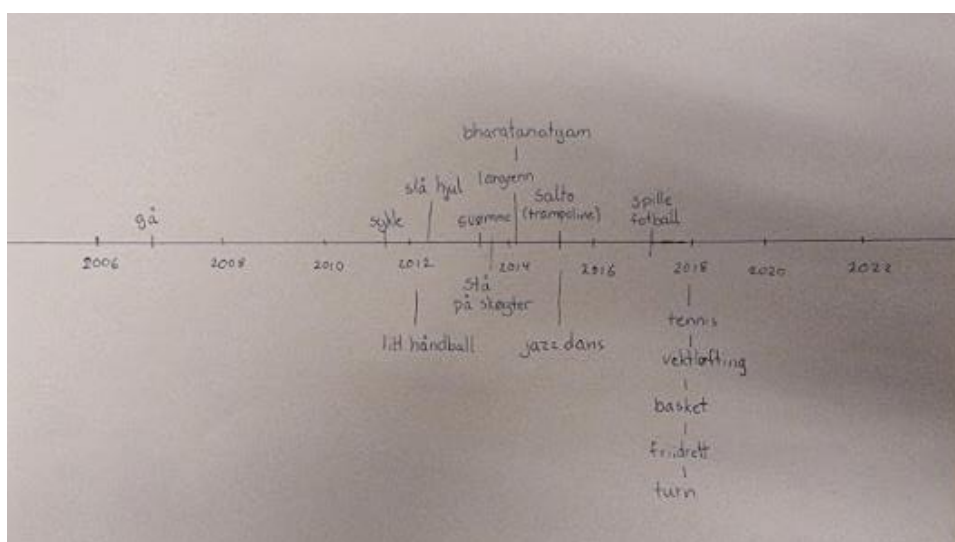 bharatanatyam
langrenn
slå hjul
salto
(trampoline)
spille
fotball
gå
sykle
svømme
2006
2008
2010
2012
2014
2016
2018
2020
2022
stå
på skøyter
litt håndball
jazz dans
tennis
vektløfting
basket
friidrett
turn